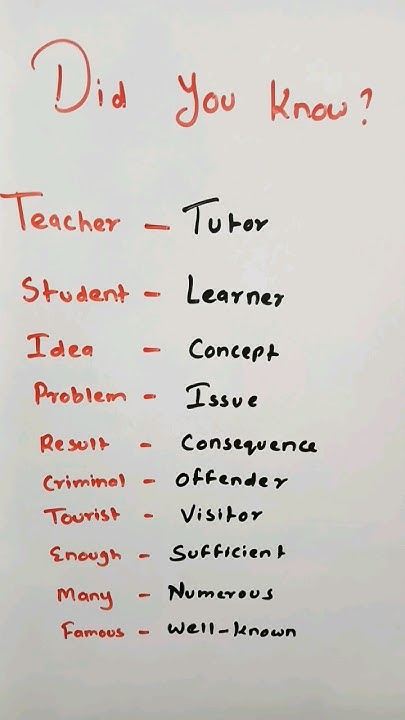 Did You know?
Teacher – Tutor
Student – Learner
Idea – Concept
Problem – Issue
Result – Consequence
Criminal – Offender
Tourist – Visitor
Enough – Sufficient
Many – Numerous
Famous – Well-known